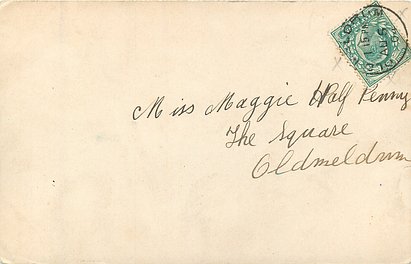 Miss Maggie Half Penny
The Square
Oldmeldrum